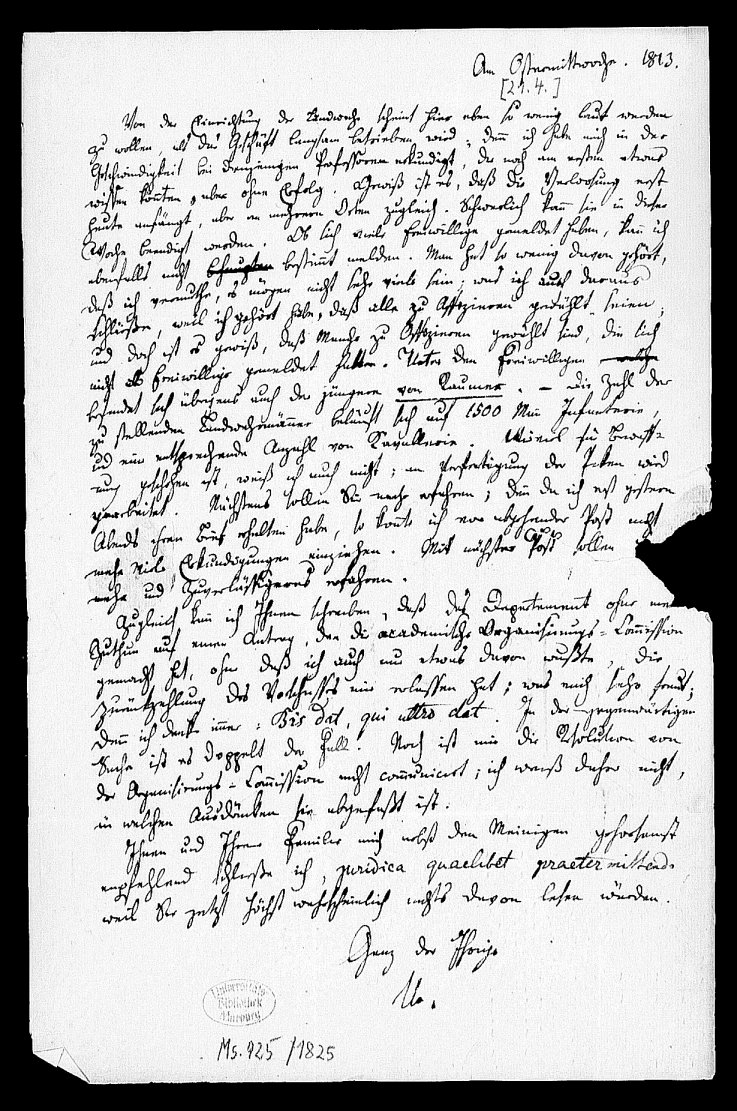 Am Ostermittwoche. 1813.
[21.4.]
Von der Einrichtung der Landwehr scheint hier eben so wenig laut werden
zu wollen, als das Geschäft langsam betrieben wird; denn ich habe mich in der
Geschwindigkeit bei denjenigen Professoren erkundigt, die noch am ersten etwas
wissen konnten, aber ohne Erfolg. Gewiß ist es, daß die Verloosung erst
heute anfängt, aber an mehrern Orten zugleich. Schwerlich kann sie in dieser
Woche beendigt werden. Ob sich viele Freiwillige gemeldet haben, kan ich
ebenfalls nicht behaupten bestimmt melden. Man hat so wenig davon gehört,
daß ich vermuthe, es mögen nicht sehr viele sein; was ich auch daraus
schließe, weil ich gehört habe, daß alle zu Offizieren gewählt seien;
und doch ist es gewiß, daß Manche zu Offizieren gewählt sind, die sich
nicht als Freiwillige gemeldet hatten. Unter den Freiwilligen
befindet sich übrigens auch der jüngere von Raumer. – Die Zahl der
zu stellenden Landwehrmänner beläuft sich auf 1500 Mann Infanterie,
und eine entsprechende Anzahl von Kavallerie. Wieviel für Bewaff-
nung geschehen ist, weiß ich auch nicht; an Verfertigung der Piken wird
gearbeitet. Nächstens sollen Sie mehr erfahren; denn da ich erst gestern
Abends ihren Brief erhalten habe, so konte ich vor abgehender Post nicht
mehr viele Erkundigungen einziehen. Mit nächster Post sollen
mehr und Zuverläßigeres erfahren.
Zugleich kann ich Ihnen schreiben, daß das Departement ohne mein
Zuthun auf einen Antrag, den die academische Organisirungs-Commission
gemacht hat, ohne daß ich auch nur etwas davon wußte, die
Zurückzahlung des Vorschusses mir erlassen hat; was mich sehr freut;
denn ich denke immer: Bis dat, qui ultro dat. In der gegenwärtigen
Sache ist es doppelt der Fall. Noch ist mir die Resolution von
der Organisirungs-Commission nicht communicirt; ich weiß daher nicht,
in welchen Ausdrücken sie abgefaßt ist.
Ihnen und Ihrer Familie mich nebst den Meinigen gehorsamst
empfehlend schließe ich, juridica quaelibet praetermittendo
weil Sie jetzt höchst wahrscheinlich nichts davon lesen würden.
Ganz der Ihrige
Universitäts
Bibliothek
Marburg
Ms. 925/1825